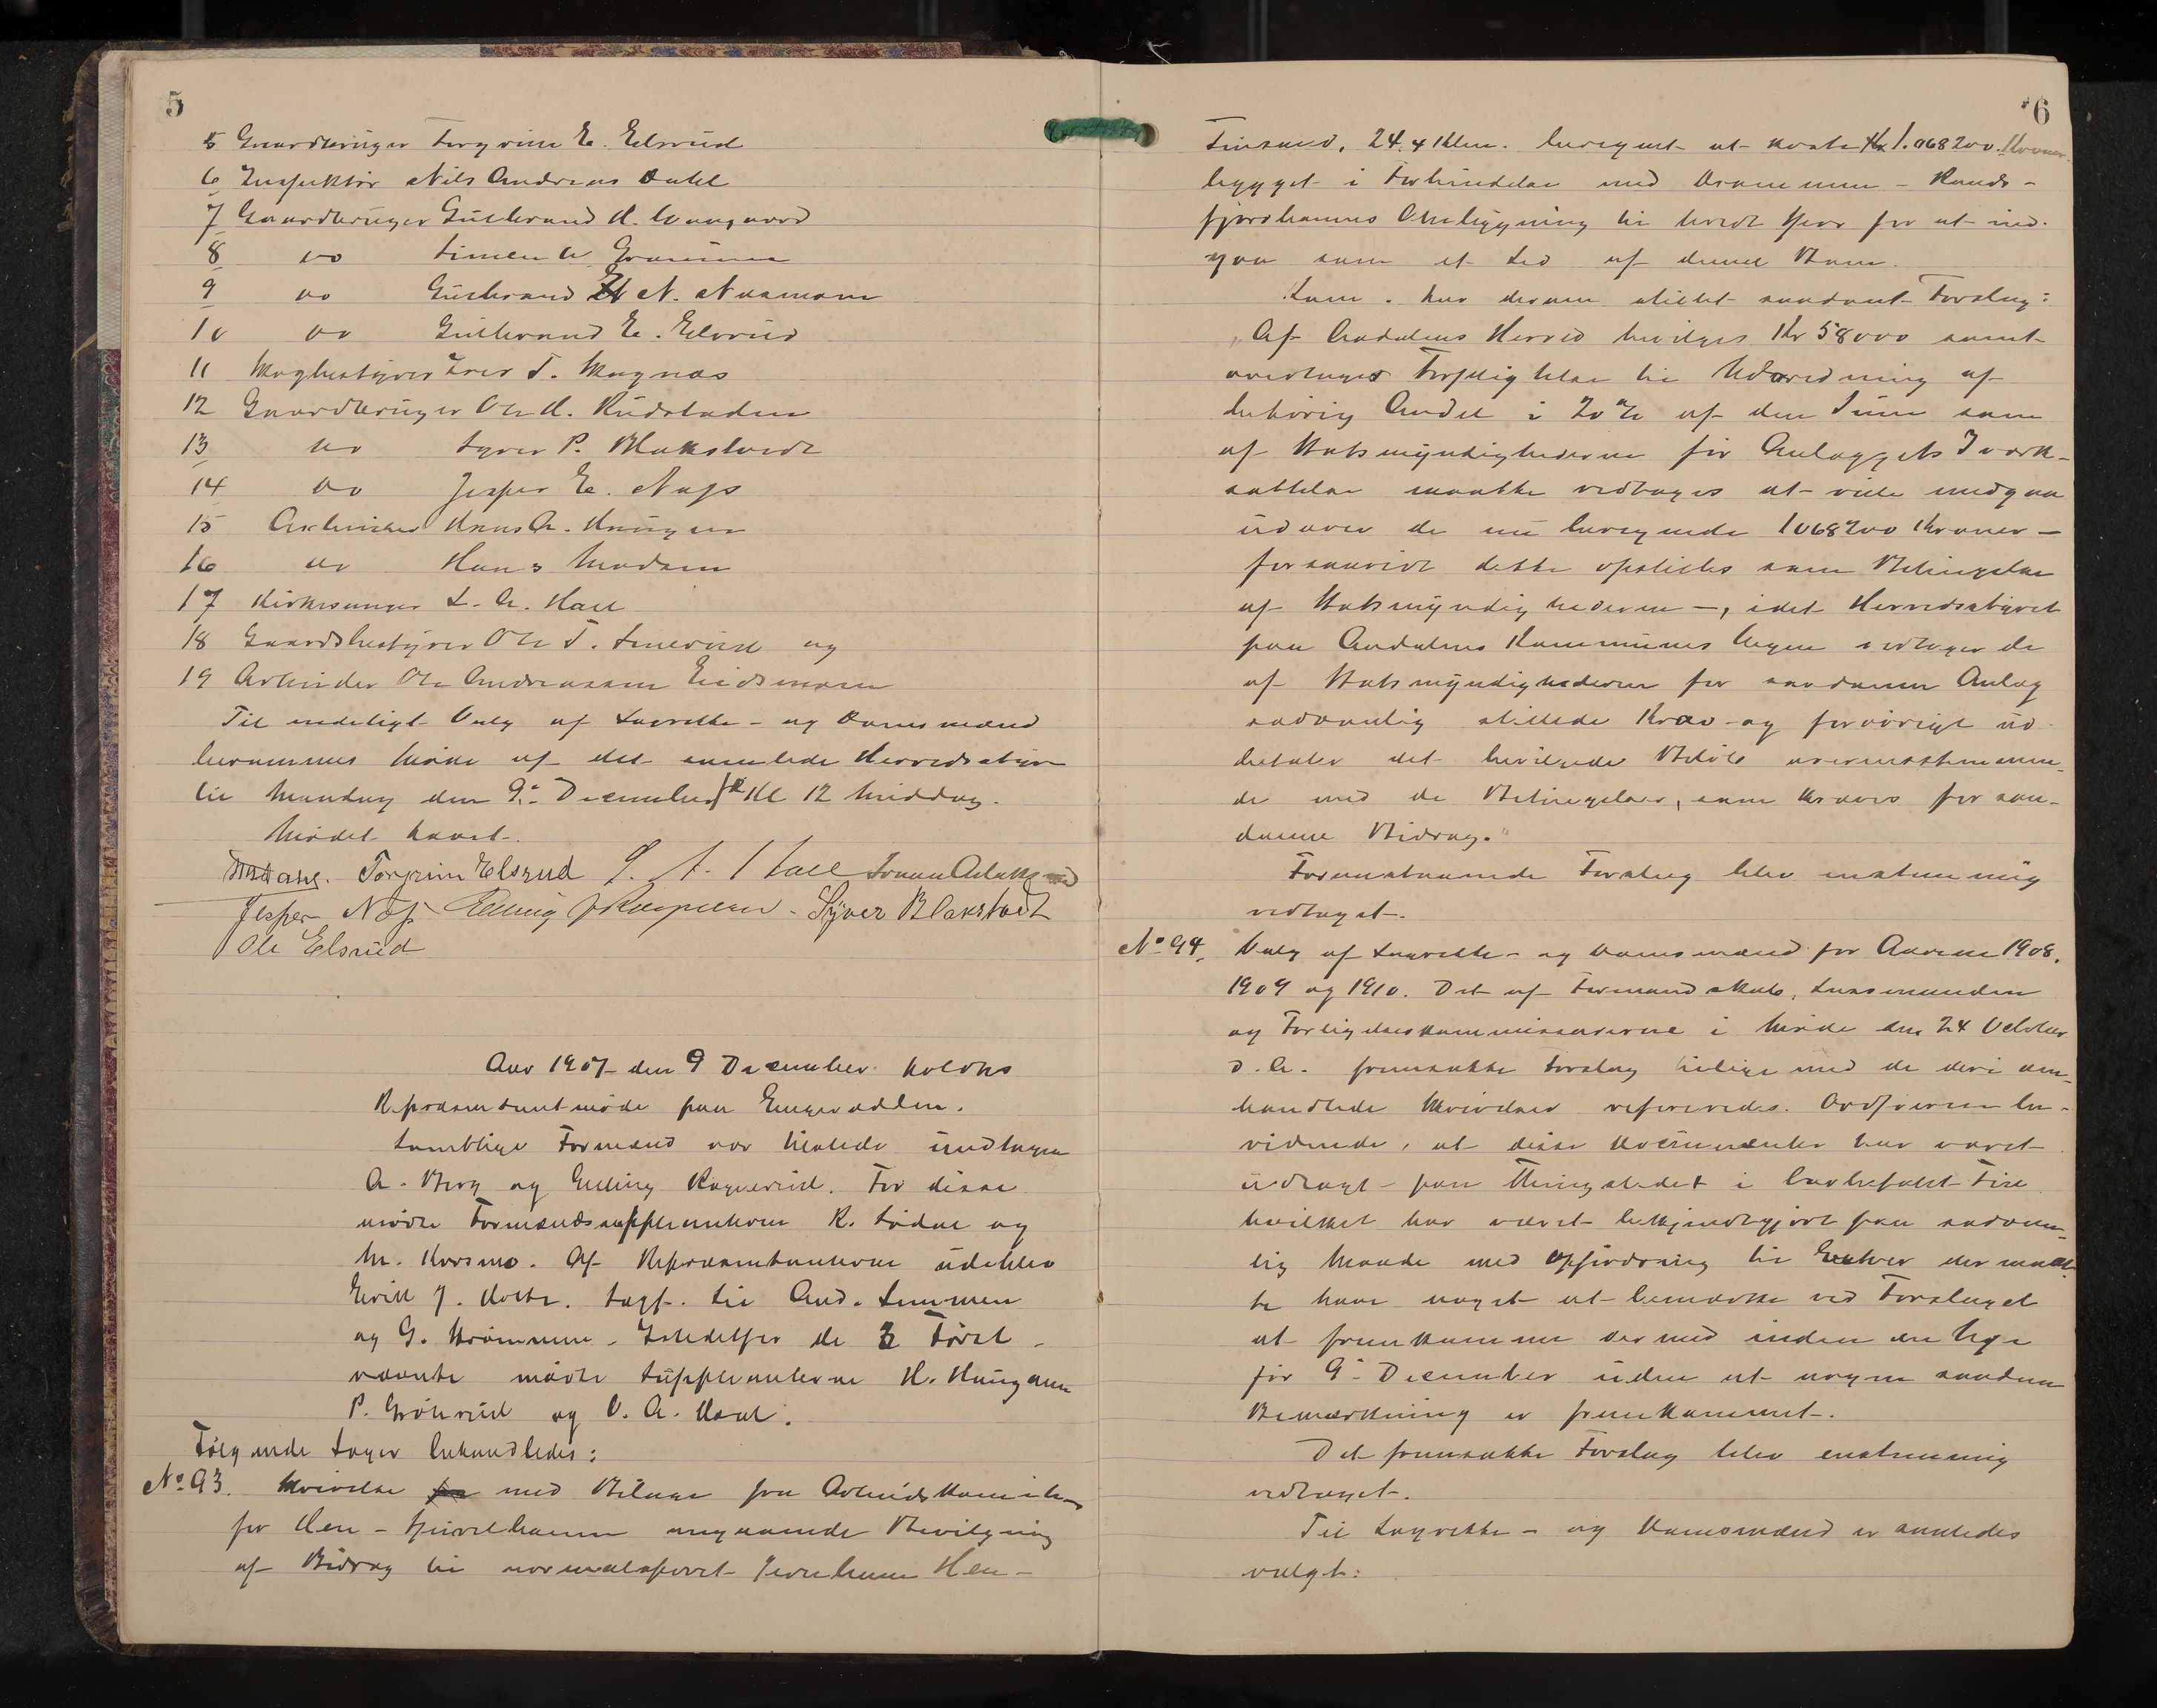 5
5 Gaardbruger Torgrim E. Elsrud
6 Inspektør Nils Andreas Dahl
7 Gaardbruger Gulbrand H.
8 do Simen
9 do Gulbrand N. Naamoen
10 do Gulbrand E. Elsrud
11 Skogbestyrer Iver T. Skagnæs
12 Gaardbruger Ole H. Rudstaden
13 do Syver P. Blakstvedt
14 do Jesper E. Næss
15 Arbeider Hans A. Haugen
16 do Hans Madsen
17 Kirkesanger L. A. Hall
18 Gaardsbestyrer Ole T. og
19 Arbeider Ole Andreassen Eidsmoen
Til endeligt Valg af Lagrette- og Domsmænd
berammes Møde af det samlede Herredsstyre
til Mandag den 9de December Kl 12 Middag.
Mødet hævet.
Torgrim Elsrud L. A. Hall
Jesper Næss Syver Blakstvedt
Ole Elsrud
Aar 1907 den 9 December holdtes
Repræsentantmøde paa
Samtlige Formænd var tilstede undtagen
A. Berg og Elling Ragnerud. For disse
mødte Formandssuppleanterne K. Sødal og
M. Korsmo. Af Repræsentanterne udeblev
J. Holte. samt And. Semmen
og G. Istedetfor de 3 Først-
nævnte mødte Suppleanterne H. Haugen
P. Grøterud og O. A.
Følgende Sager behandledes:
No 93. Skrivelse med Bilage fra
for Hen- angaaende Bevilgning
af Bidrag til normalsporet Jernbane Hen-
6
24.4 Klm. beregnet at koste Kr 1.068200 Kroner
bygget i Forbindelse med Drammen-Rands-
fjordbanens Ombygning til bredt Spor for at ind-
gaa som et Led af denne Bane.
Kom. har derom stillet saadant Forslag:
"Af Aadalens Herred bevilges Kr 58000 samt
overtages Forpligtelse til Udredning af
behørig Andel i 20% af den Sum som
af Statsmyndighederne før Anlæggets Iværk-
sættelse maatte vedtages at ville medgaa
udover de nu beregnede 1068200 Kroner -
forsaavidt dette opstilles som Betingelse
af Statsmyndighederne -, idet Herredsstyret
paa Aadalens Kommunes Vegne vedtager de
af Statsmyndighederne for saadanne Anlæg
sædvanlig stillede Krav og forøvrigt ud-
betaler det bevilgede Beløb overensstemmen-
de med de Betingelser, som kræves for saa-
danne Bidrag."
Foranstaaende Forslag blev enstemmig
vedtaget.
No 94. Valg af Lagrette- og Domsmænd for Aarene 1908,
1909 og 1910. Det af Formandskab, Lensmanden
og Forligelseskommissærerne i Møde den 24 October
d. A. fremsatte Forslag tilligemed de deri om-
handlede Skrivelser refereredes. Ordføreren be-
vidnede, at disse Documenter har været
udlagt paa Thingstedet i lovbefalet Tid
hvilket har været bekjendtgjort paa sædvan-
lig Maade med Opfordring til Enhver der maat-
te have noget at bemærke ved Forslaget
at fremkomme dermed inden en Uge
før 9de December uden at nogen saadan
Bemærkning er fremkommet.
Det fremsatte Forslag blev enstemmig
vedtaget.
Til Lagrette- og Domsmænd er saaledes
valgt: